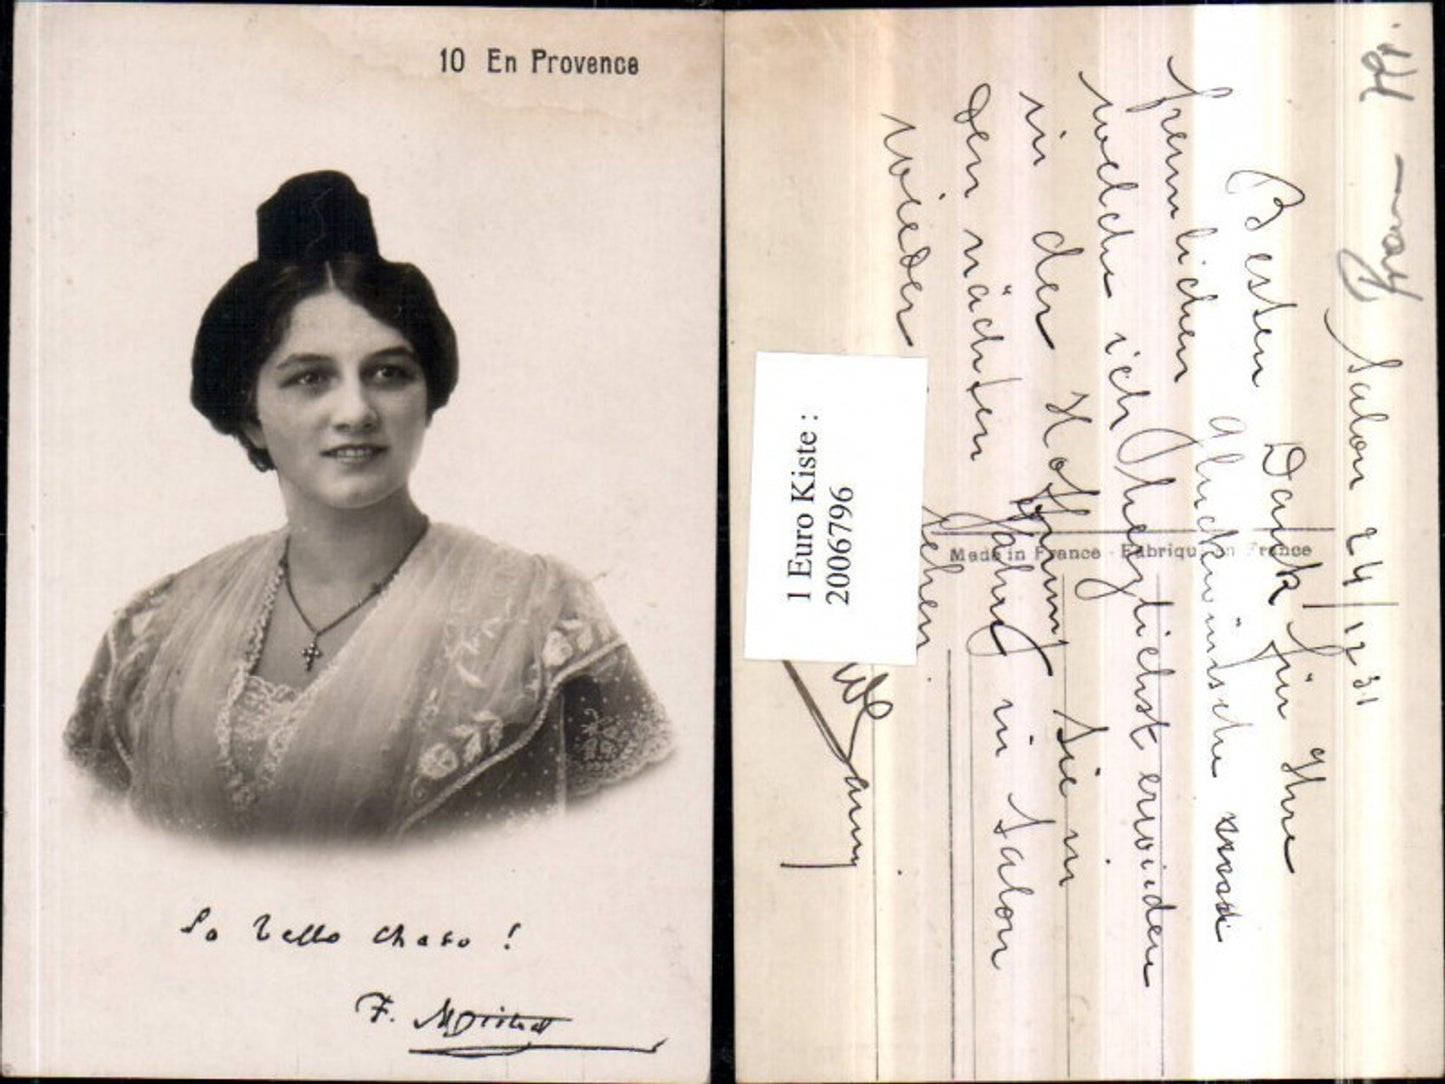 10 En Provence
F. Mistral
Salon 24/12 31
Besten Dank für Ihre
freundlichen Glückwünsche
welche ich herzlichst erwidere
in der Hoffnung Sie in
den nächsten Jahre in Salon
wieder sehen
Made in France - Fabriqu en France
1 Euro Kiste :
2006796